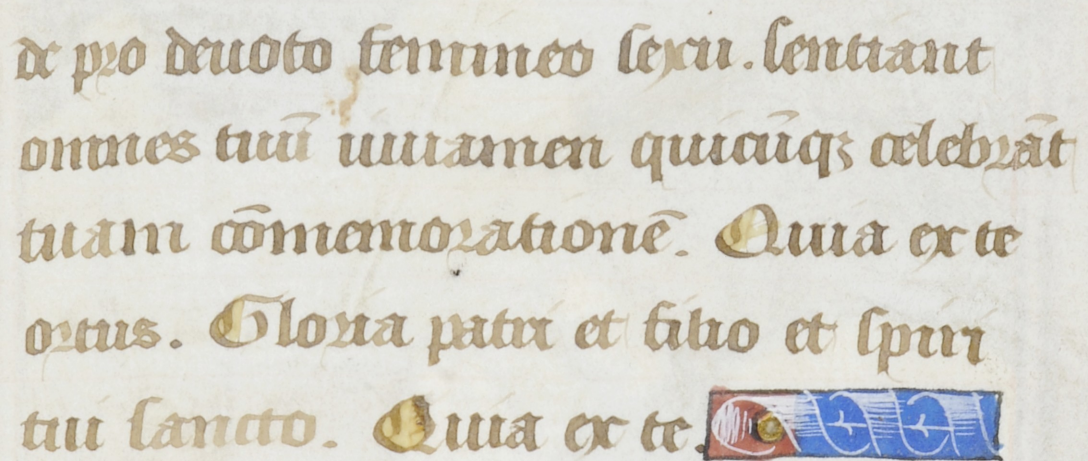 de pro deuoto femineo sexu. sentiant
omnes tuū iuuamen quicūqꝫ celebrāt
tuam cōmemorationē. Quia ex te
ortus. Gloria patri et filio et spiri
tui sancto. Quia ex te.